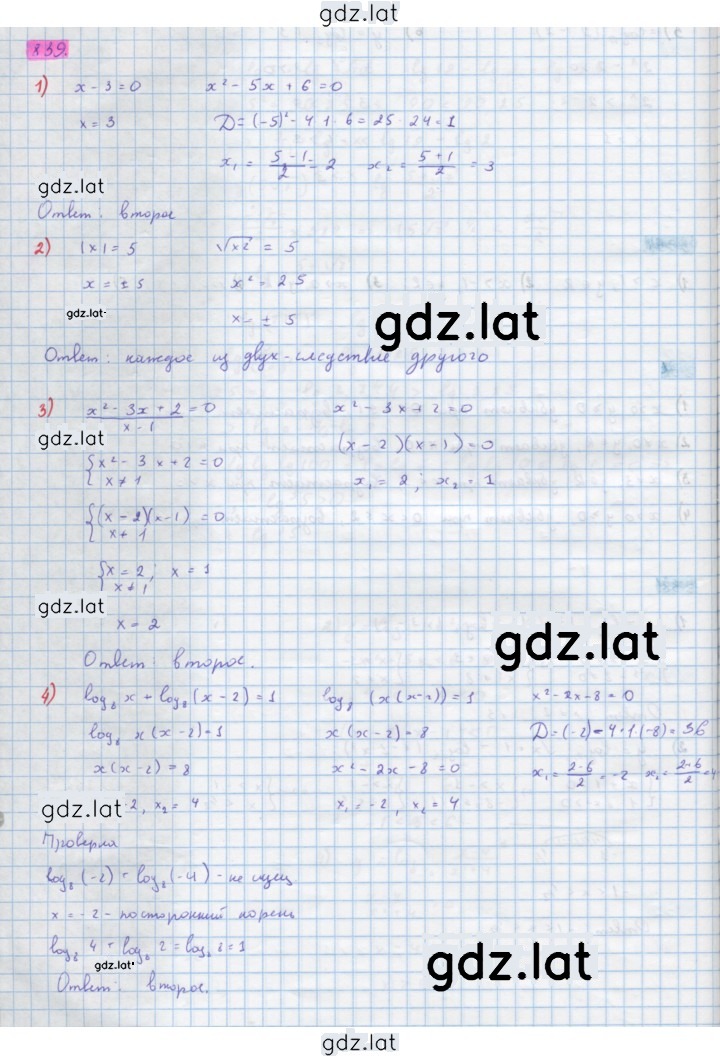 gdz.lat
839.
1) x - 3 = 0    x² - 5x + 6 = 0
x = 3    D = (-5)² - 4 · 1 · 6 = 25 - 24 = 1
x₁ = (5 - 1)/2 = 2    x₂ = (5 + 1)/2 = 3
gdz.lat
Ответ: второе
2) |x| = 5    √x² = 5
x = ± 5    x² = 25
gdz.lat
x = ± 5
gdz.lat
Ответ: каждое из двух - следствие другого
3) (x² - 3x + 2)/(x - 1) = 0    x² - 3x + 2 = 0
gdz.lat
(x - 2)(x - 1) = 0
{x² - 3x + 2 = 0
x ≠ 1
x₁ = 2; x₂ = 1
{(x - 2)(x - 1) = 0
x ≠ 1
{x = 2; x = 1
x ≠ 1
gdz.lat
x = 2
gdz.lat
Ответ: второе.
4) log₈ x + log₈ (x - 2) = 1    log₈ (x(x - 2)) = 1    x² - 2x - 8 = 0
log₈ x(x - 2) = 1    x(x - 2) = 8    D = (-2) - 4 · 1 (-8) = 36
x(x - 2) = 8    x² - 2x - 8 = 0    x₁ = (2 - 6)/2 = -2    x₂ = (2 + 6)/2 = 4
gdz.lat
-2, x₂ = 4    x₁ = -2, x₂ = 4
gdz.lat
Проверка
log₈ (-2) + log₈ (-4) - не сущ
x = -2 - посторонний корень
log₈ 4 + log₈ 2 = log₈ 8 = 1
gdz.lat
gdz.lat
Ответ: второе.
gdz.lat